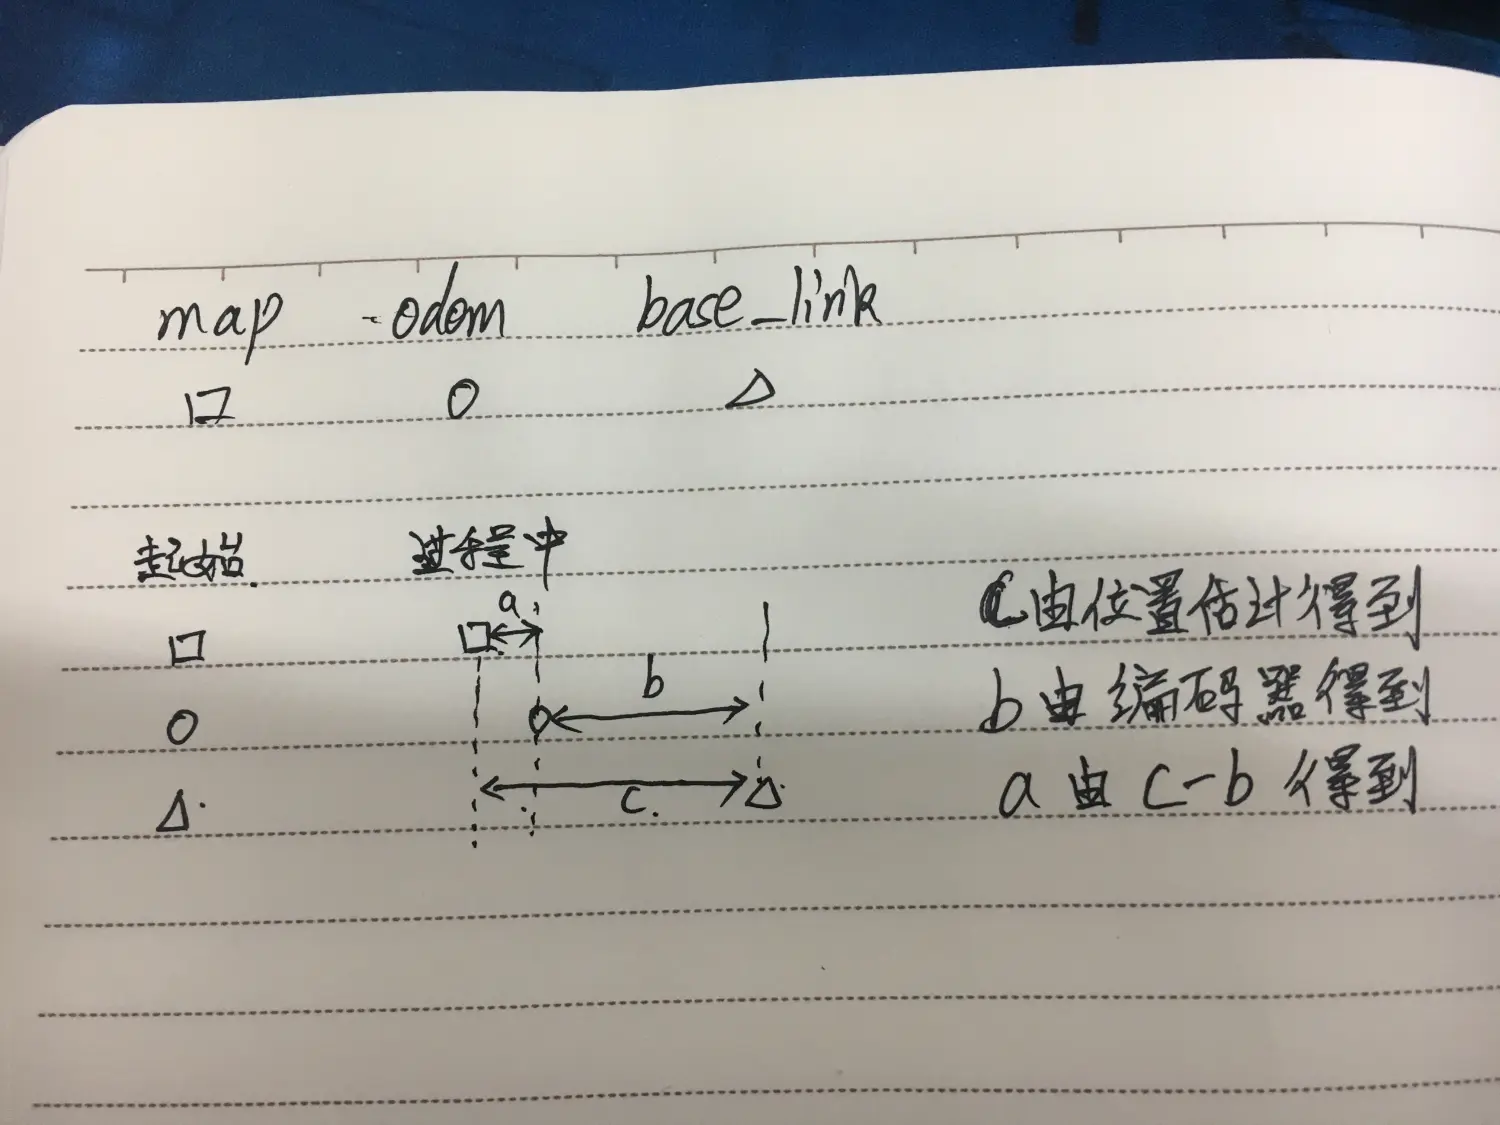 map -odom base_link
起始 过程中
a
c由位置估计得到
b
b由编码器得到
c.
a由c-b得到